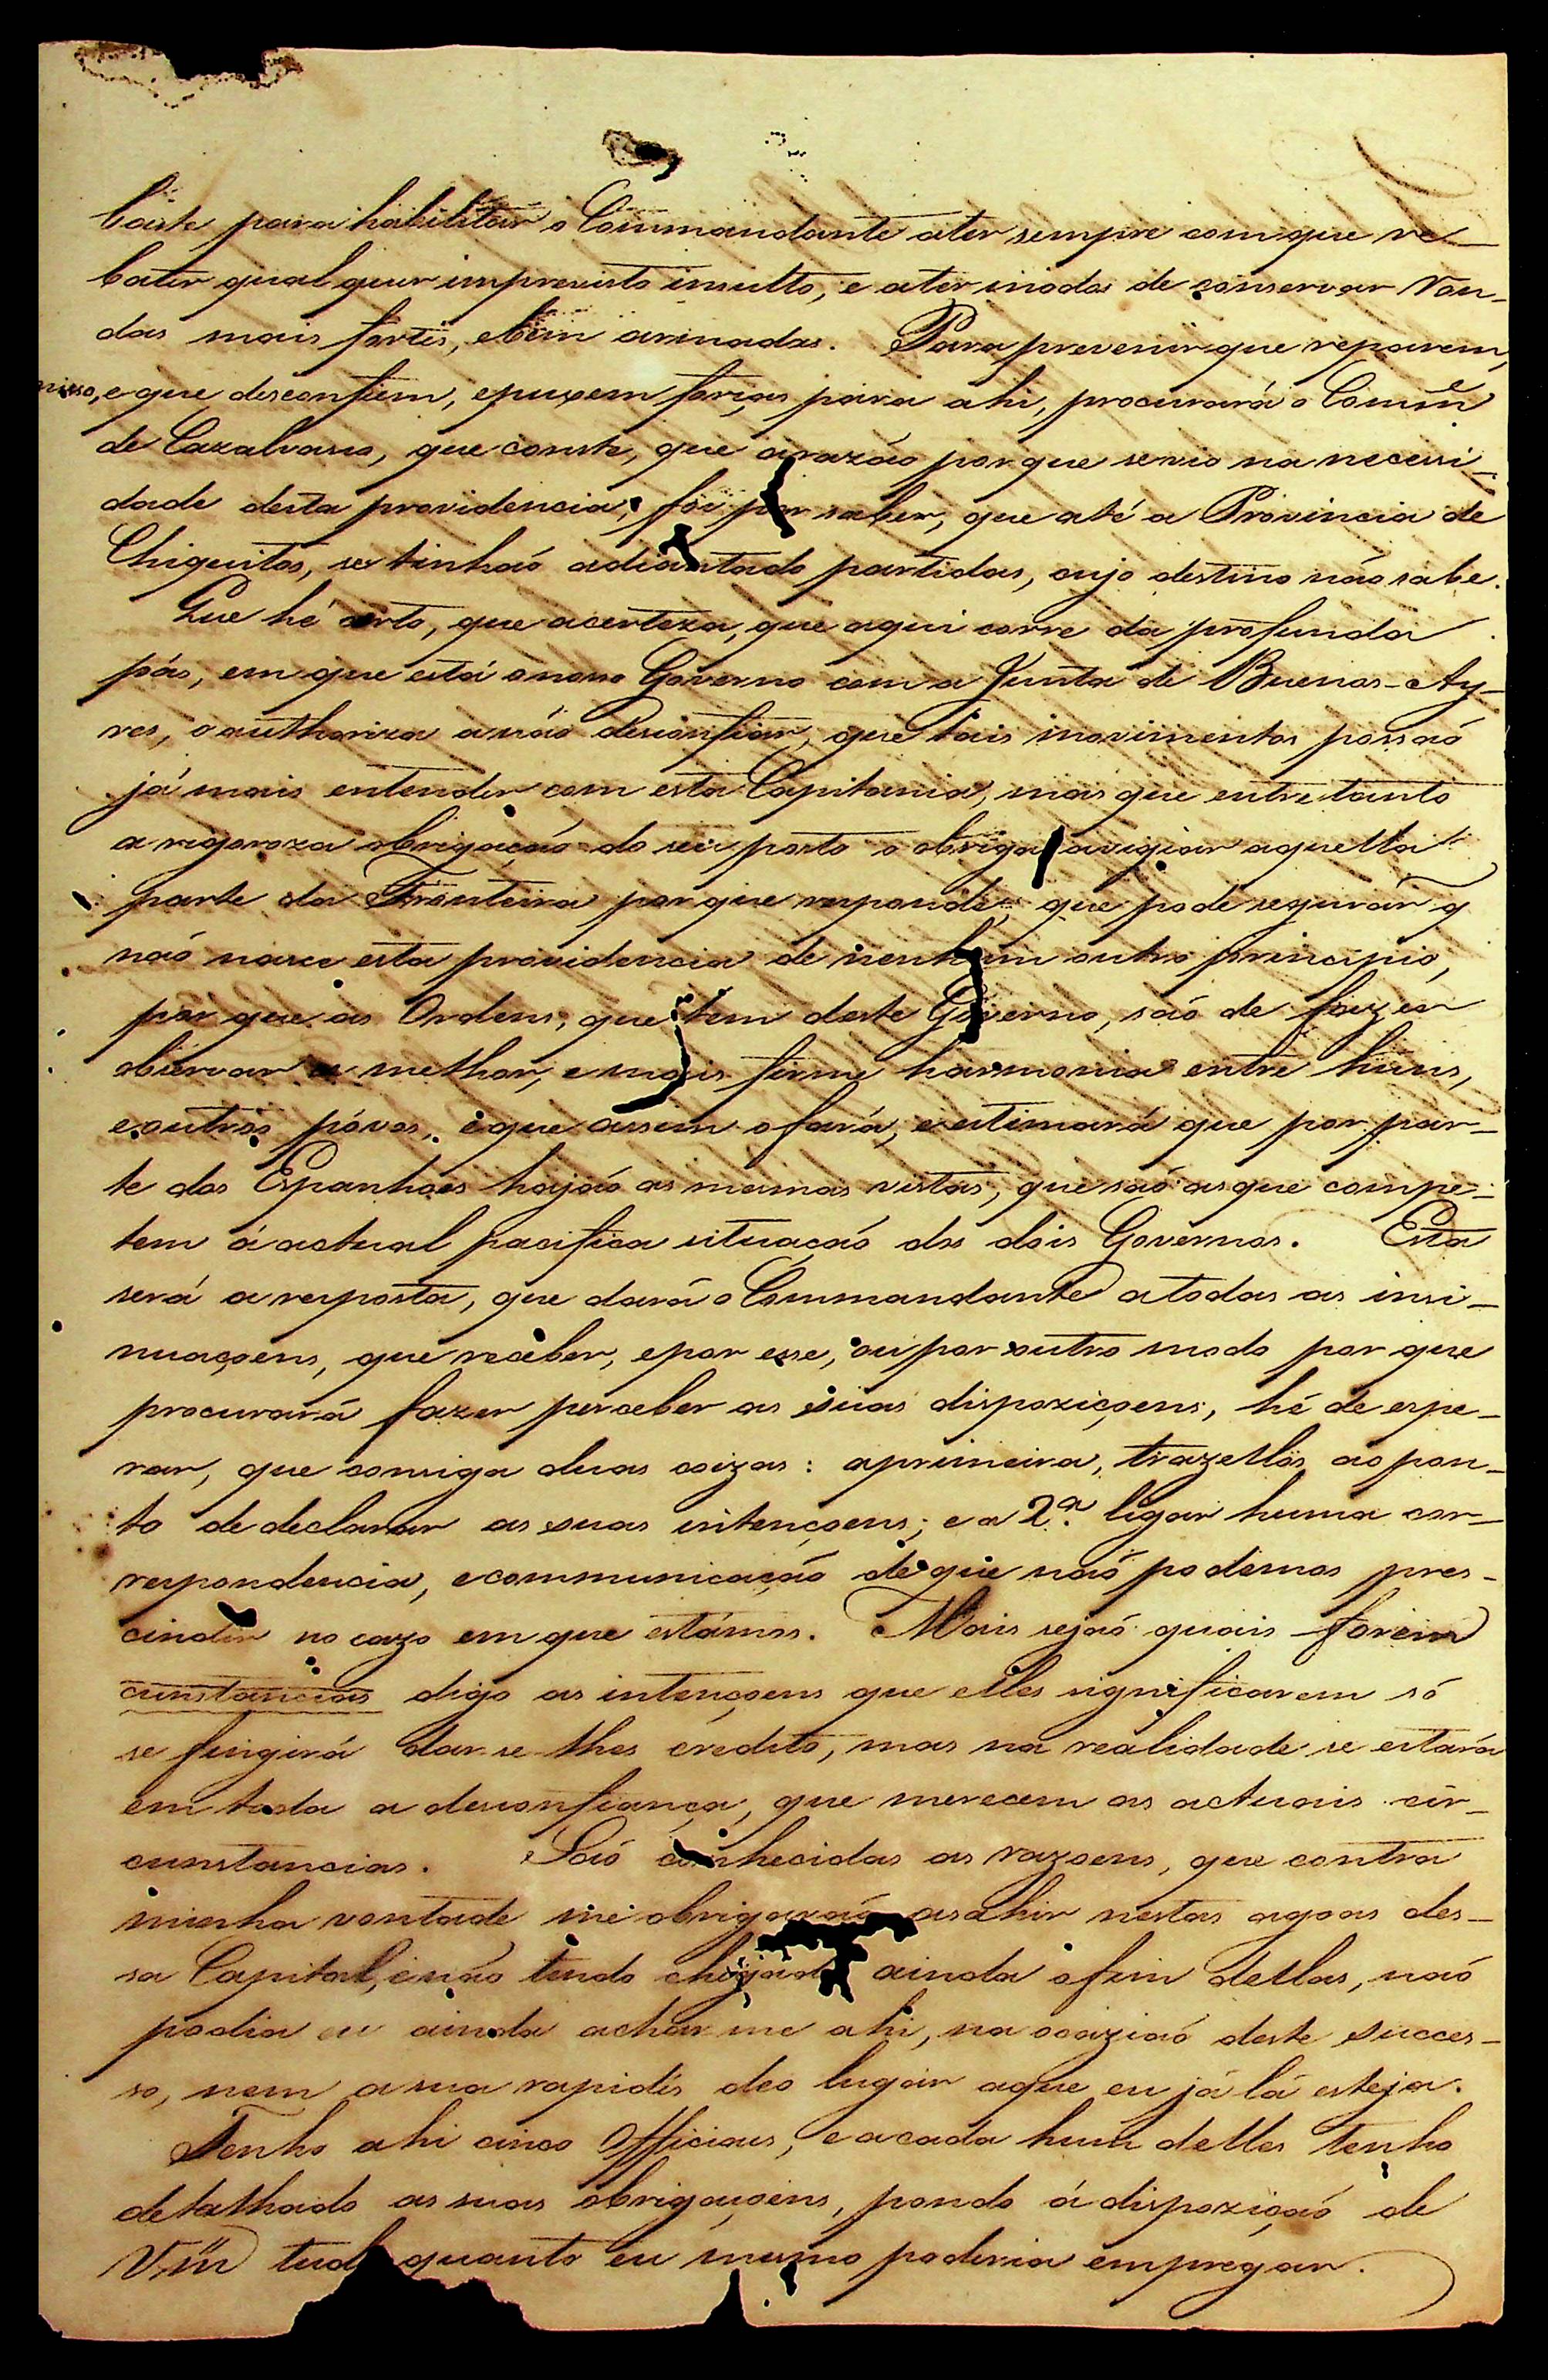 baste para habilitar o Commandante ater sempre com que re-
bater qual quer imprevisto insulto, e ater modos de conservar Ron-
das mais fortes, ebem armadas. Para prevenir que reparem,
nisso, e que desconfiem, epuxem forças para ahi, procurará o Comm.e
de Cazalvasco, que conste, que arazão porque serveo na necessi-
dade desta providencia, foi por saber, que até a Provincia de
Chiquitos, se tinhaõ adiantado partidas, cujo destino não sabe.
Que hé certo, que acerteza, que aqui corre da profunda
pás, em que está onosso Governo com a Junta de Buenos-Ay-
res, o authoriza anão desconfiar, que tais movimentos possaõ
já mais entender com esta Capitania, mas que entretanto
a rigoroza obrigaçaõ do seu posto o obriga avigiar aquella
parte da Fronteira por que responde, que pode segurar q
naõ nasce esta providencia de nenhum outro principio,
por que as Ordens, que tem deste Governo, saõ de fazer
observar a melhor, e mais firme harmonia entre huns,
eoutros póvos, eque assim ofará, eestimará que por par-
te dos Espanhoes hajaõ as mesmas vistas, que saõ asque compe-
tem á actual pacifica situaçaõ dos dois Governos. Esta
será a resposta, que dará o Commandante atodas as insi-
nuaçoens, que receber, epor esse, ou por outro modo por que
procurará fazer perceber as suas dispoziçoens, hé de espe-
rar, que consiga duas coizas: aprimeira, trazellos ao pon-
to dedeclarar as suas intençoens; e a 2.ª ligar huma cor-
respondencia, ecommunicaçaõ deque naõ podemos pres-
cindir no cazo em que estámos. Mais sejaõ quais forem
cunstancias digo as intençoens que elles significarem só
se fingirá dar-se-lhes credito, mas na realidade se estará
em toda a desconfiança, que merecem as actuais cir-
cunstancias. Saõ conhecidas as razoens, que contra
minha vontade me obrigaraõ asahir nestas agoas des-
sa Capital, enão tendo chegado ainda ofim dellas, naõ
podia eu ainda achar me ahi, na ocaziaõ deste succes-
so, nem a sua rapidés deo lugar aque eu já lá esteja.
Tenho ahi cinco Officiaes, e acada hum delles tenho
detalhado as suas obrigaçoens, pondo á dispoziçaõ de
Vm. tudo quanto eu mesmo poderia empregar.